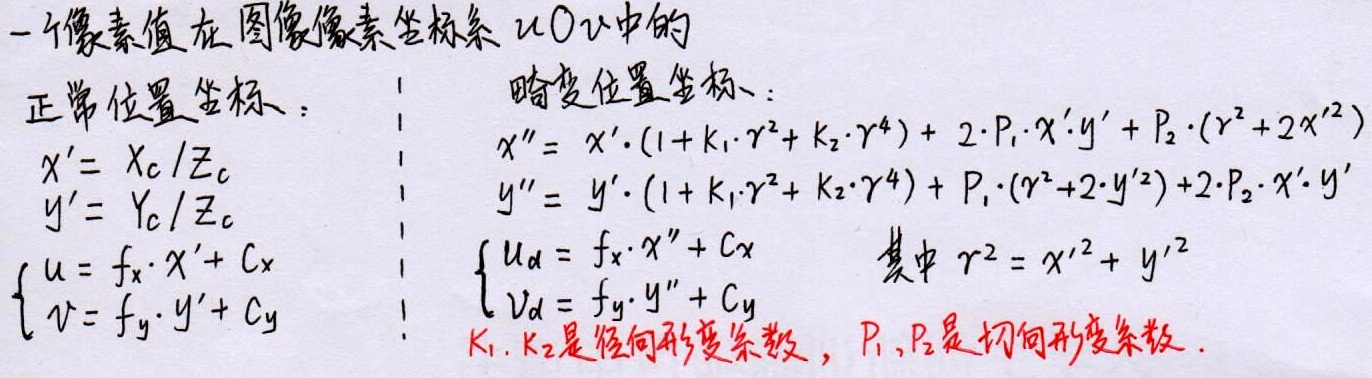 一个像素值在图像像素坐标系 uOv中的
正常位置坐标:
x′= Xc/Zc
y′= Yc/Zc
u = fx·x′+ Cx
v = fy·y′+ Cy
畸变位置坐标:
x″= x′·(1+K₁·r²+K₂·r⁴)+ 2·P₁·x′·y′+P₂·(r²+2x′²)
y″= y′·(1+K₁·r²+K₂·r⁴)+P₁·(r²+2·y′²)+2·P₂·x′·y′
ud = fx·x″+Cx
vd = fy·y″+Cy
其中 r²=x′²+y′²
K₁.K₂是径向形变系数, P₁,P₂是切向形变系数.